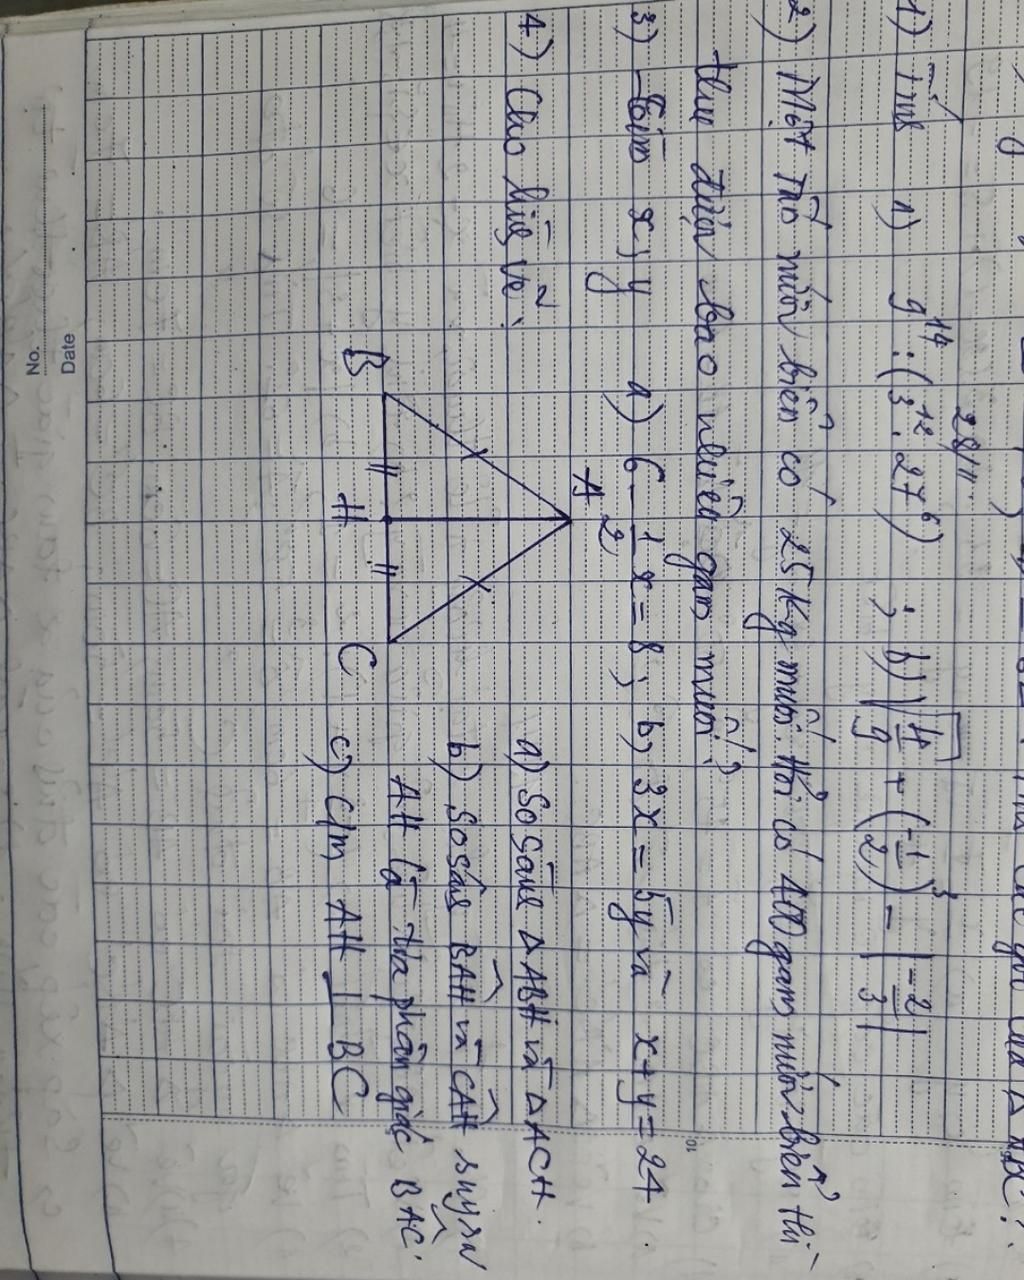 28/11.
1) Tính 1) 9^14 : (3^12 . 27^6) ; b) √(4/9) + (-1/2)^3 - |-2/3|
2) Một tạ nước biển có 25 Kg muối. Hỏi có 400 gam nước biển thì
thu được bao nhiêu gam muối?
3) Tìm x; y a) 6 - 1/2 x = 8; b) 3x = 5y và x + y = 24
4) Cho hình vẽ:
A
B
H
C
a) So sánh Δ ABH và Δ ACH.
b) So sánh BAH và CAH suy ra
AH là tia phân giác BAC.
c) C/m AH ⊥ BC
No.
Date